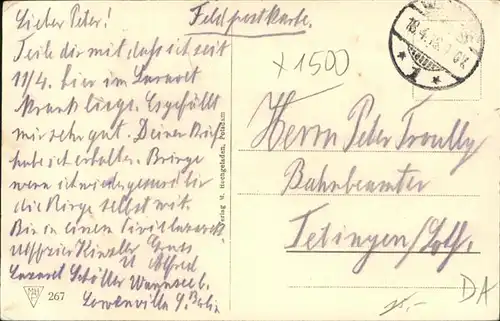 Lieber Peter!
Teile dir mit, daß ich seit
11/4. hier im Lazaret
krank liege. Es gefällt
mir sehr gut. Deinen Brief
habe ich erhalten. Bringe
wenn ich wieder gesund bin
die Ringe selbst mit.
Bin in einem Civillazarett
Uffzier Kinzler Gruss
Alfred
Lazaret Schöller Wannsee b.
Berlin
Feldpostkarte.
x 1500
18.4.
Herrn Peter
Bahnbeamter
Tetingen/Loth.
DA
Verlag M. Hochgeladen, Potsdam
267